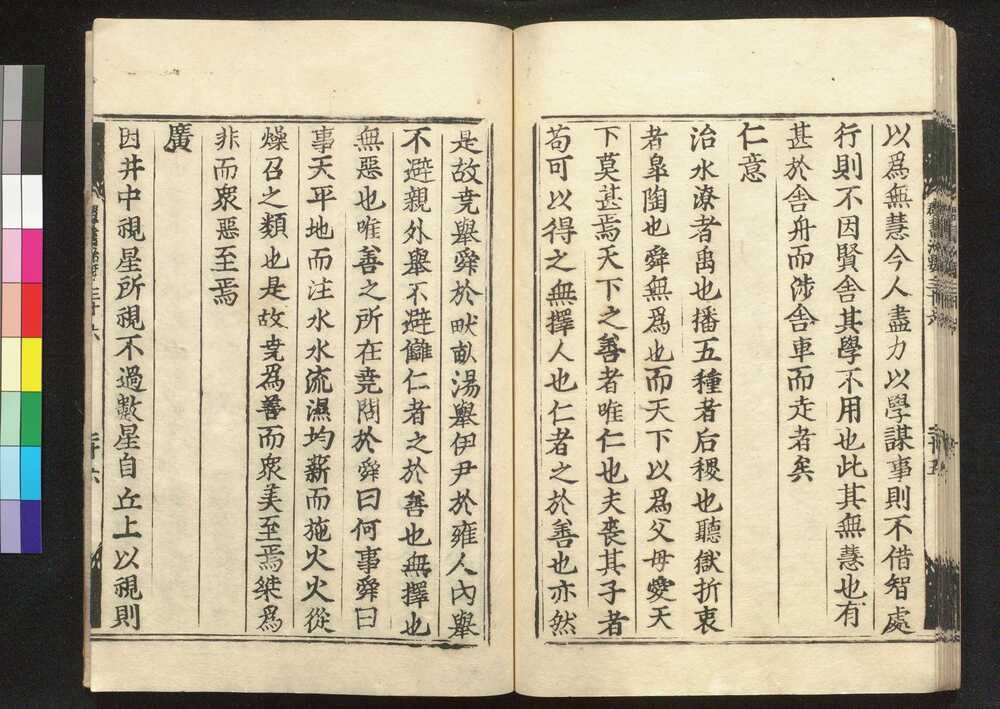 以爲無慧今人盡力以學謀事則不借智處
行則不因賢舍其學不用也此其無慧也有
甚於舍舟而涉舍車而走者矣
仁意
治水潦者禹也播五種者后稷也聽獄折衷
者皐陶也舜無爲也而天下以爲父母愛天
下莫甚焉天下之善者唯仁也夫喪其子者
苟可以得之無擇人也仁者之於善也亦然
是故堯舉舜於畎畝湯舉伊尹於雍人內舉
不避親外舉不避讎仁者之於善也無擇也
無惡也唯善之所在堯問於舜曰何事舜曰
事天平地而注水水流濕均薪而施火火從
燥召之類也是故堯爲善而衆美至焉桀爲
非而衆惡至焉
廣
因井中視星所視不過數星自丘上以視則